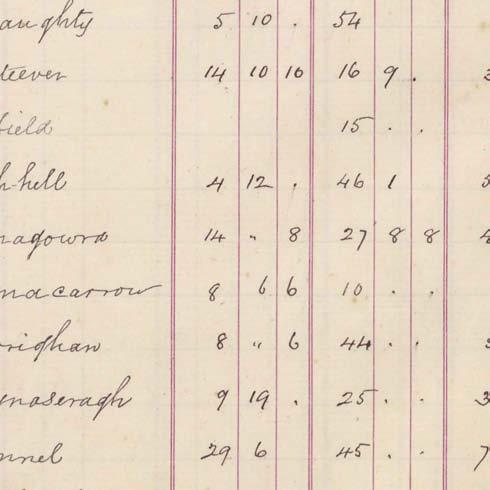 aughty 5 10 . 54
teever 14 10 10 16 9 . 3
field 15 . .
hell 4 12 . 46 1 5
agowra 14 " 8 27 8 8 4
nacarrow 8 6 6 10 . .
righan 8 " 6 44 . . 3
naseragh 9 19 . 25 . . 3
nnel 29 6 45 . . 7